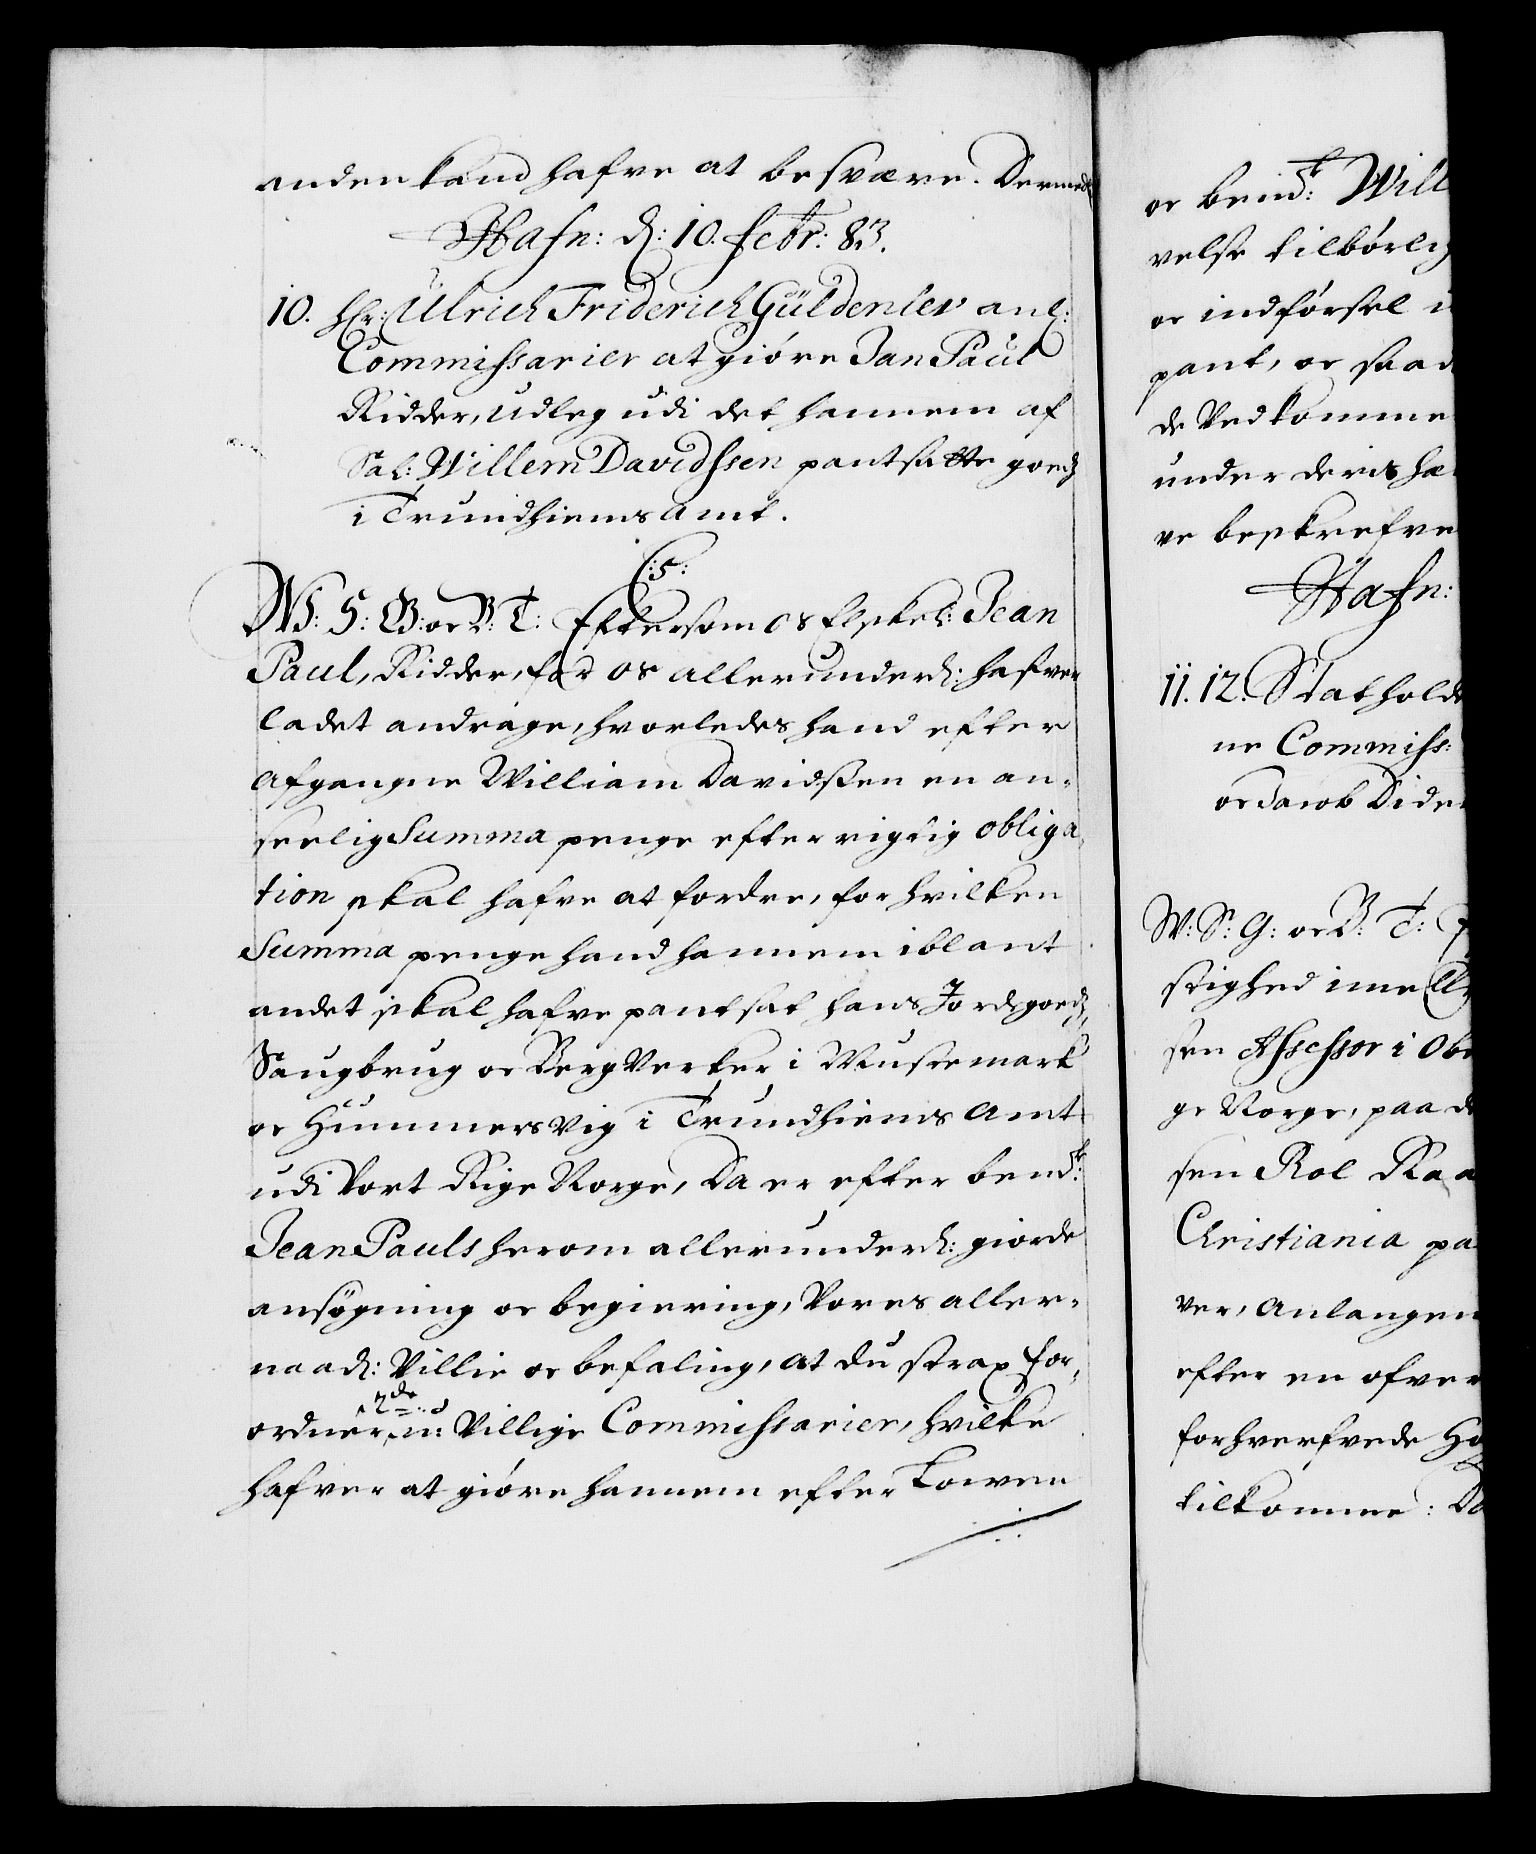 anden kand hafve at besvære. Dermed
Hafn: d: 10. Febr: 83.
10. Hr: Ulrich Friderich Güldenlev anl:
Commissarier at giøre Jan Paul
Ridder, Udleg udi det hannem af
Sal: Willem Davidssen pantsatte goeds
i Trundhiems Amt.
C:5:
W: S: G: oc B: T: Eftersom os Elskel: Jean
Paul, Ridder, for os allerunderd: hafver
ladet andrage, hvorledes hand efter
afgangne William Davidssen en an-
seelig Summa penge efter rigtig obliga-
tion skal hafve at fordre, for hvilken
Summa penge hand hannem iblant
andet skal hafve pantsat hans Jordegoeds,
Saugbrug oc Berg Verker i Mustemark
oc Hummers Vig i Trundhiems Amt
udi Vort Rige Norge, Da er efter bemd.t
Jean Pauls herom allerunderd: giorde
ansøgning oc begiering, Vores aller-
naad: Villie oc befaling, at du strax for-
ordner 2de u: Villige Commissarier, hvilke
hafver at giøre hannem efter Lowen
oc bemd.t Will
velse tilbørlig
oc indførsel i
pant, oc saad
de Vedkomme
under deris hæ
ve beskrefve
Hafn:
11. 12. Statholde
ne Commiss:
oc Jacob Dider
W: S: G: oc B: T:
stighed imell
sen Assessor i Obe
ge Norge, paa d
sen Roe Raa
Christiania pa
ver, Anlangen
efter en ofver
forhverfvede Hø
tilkomme: Da